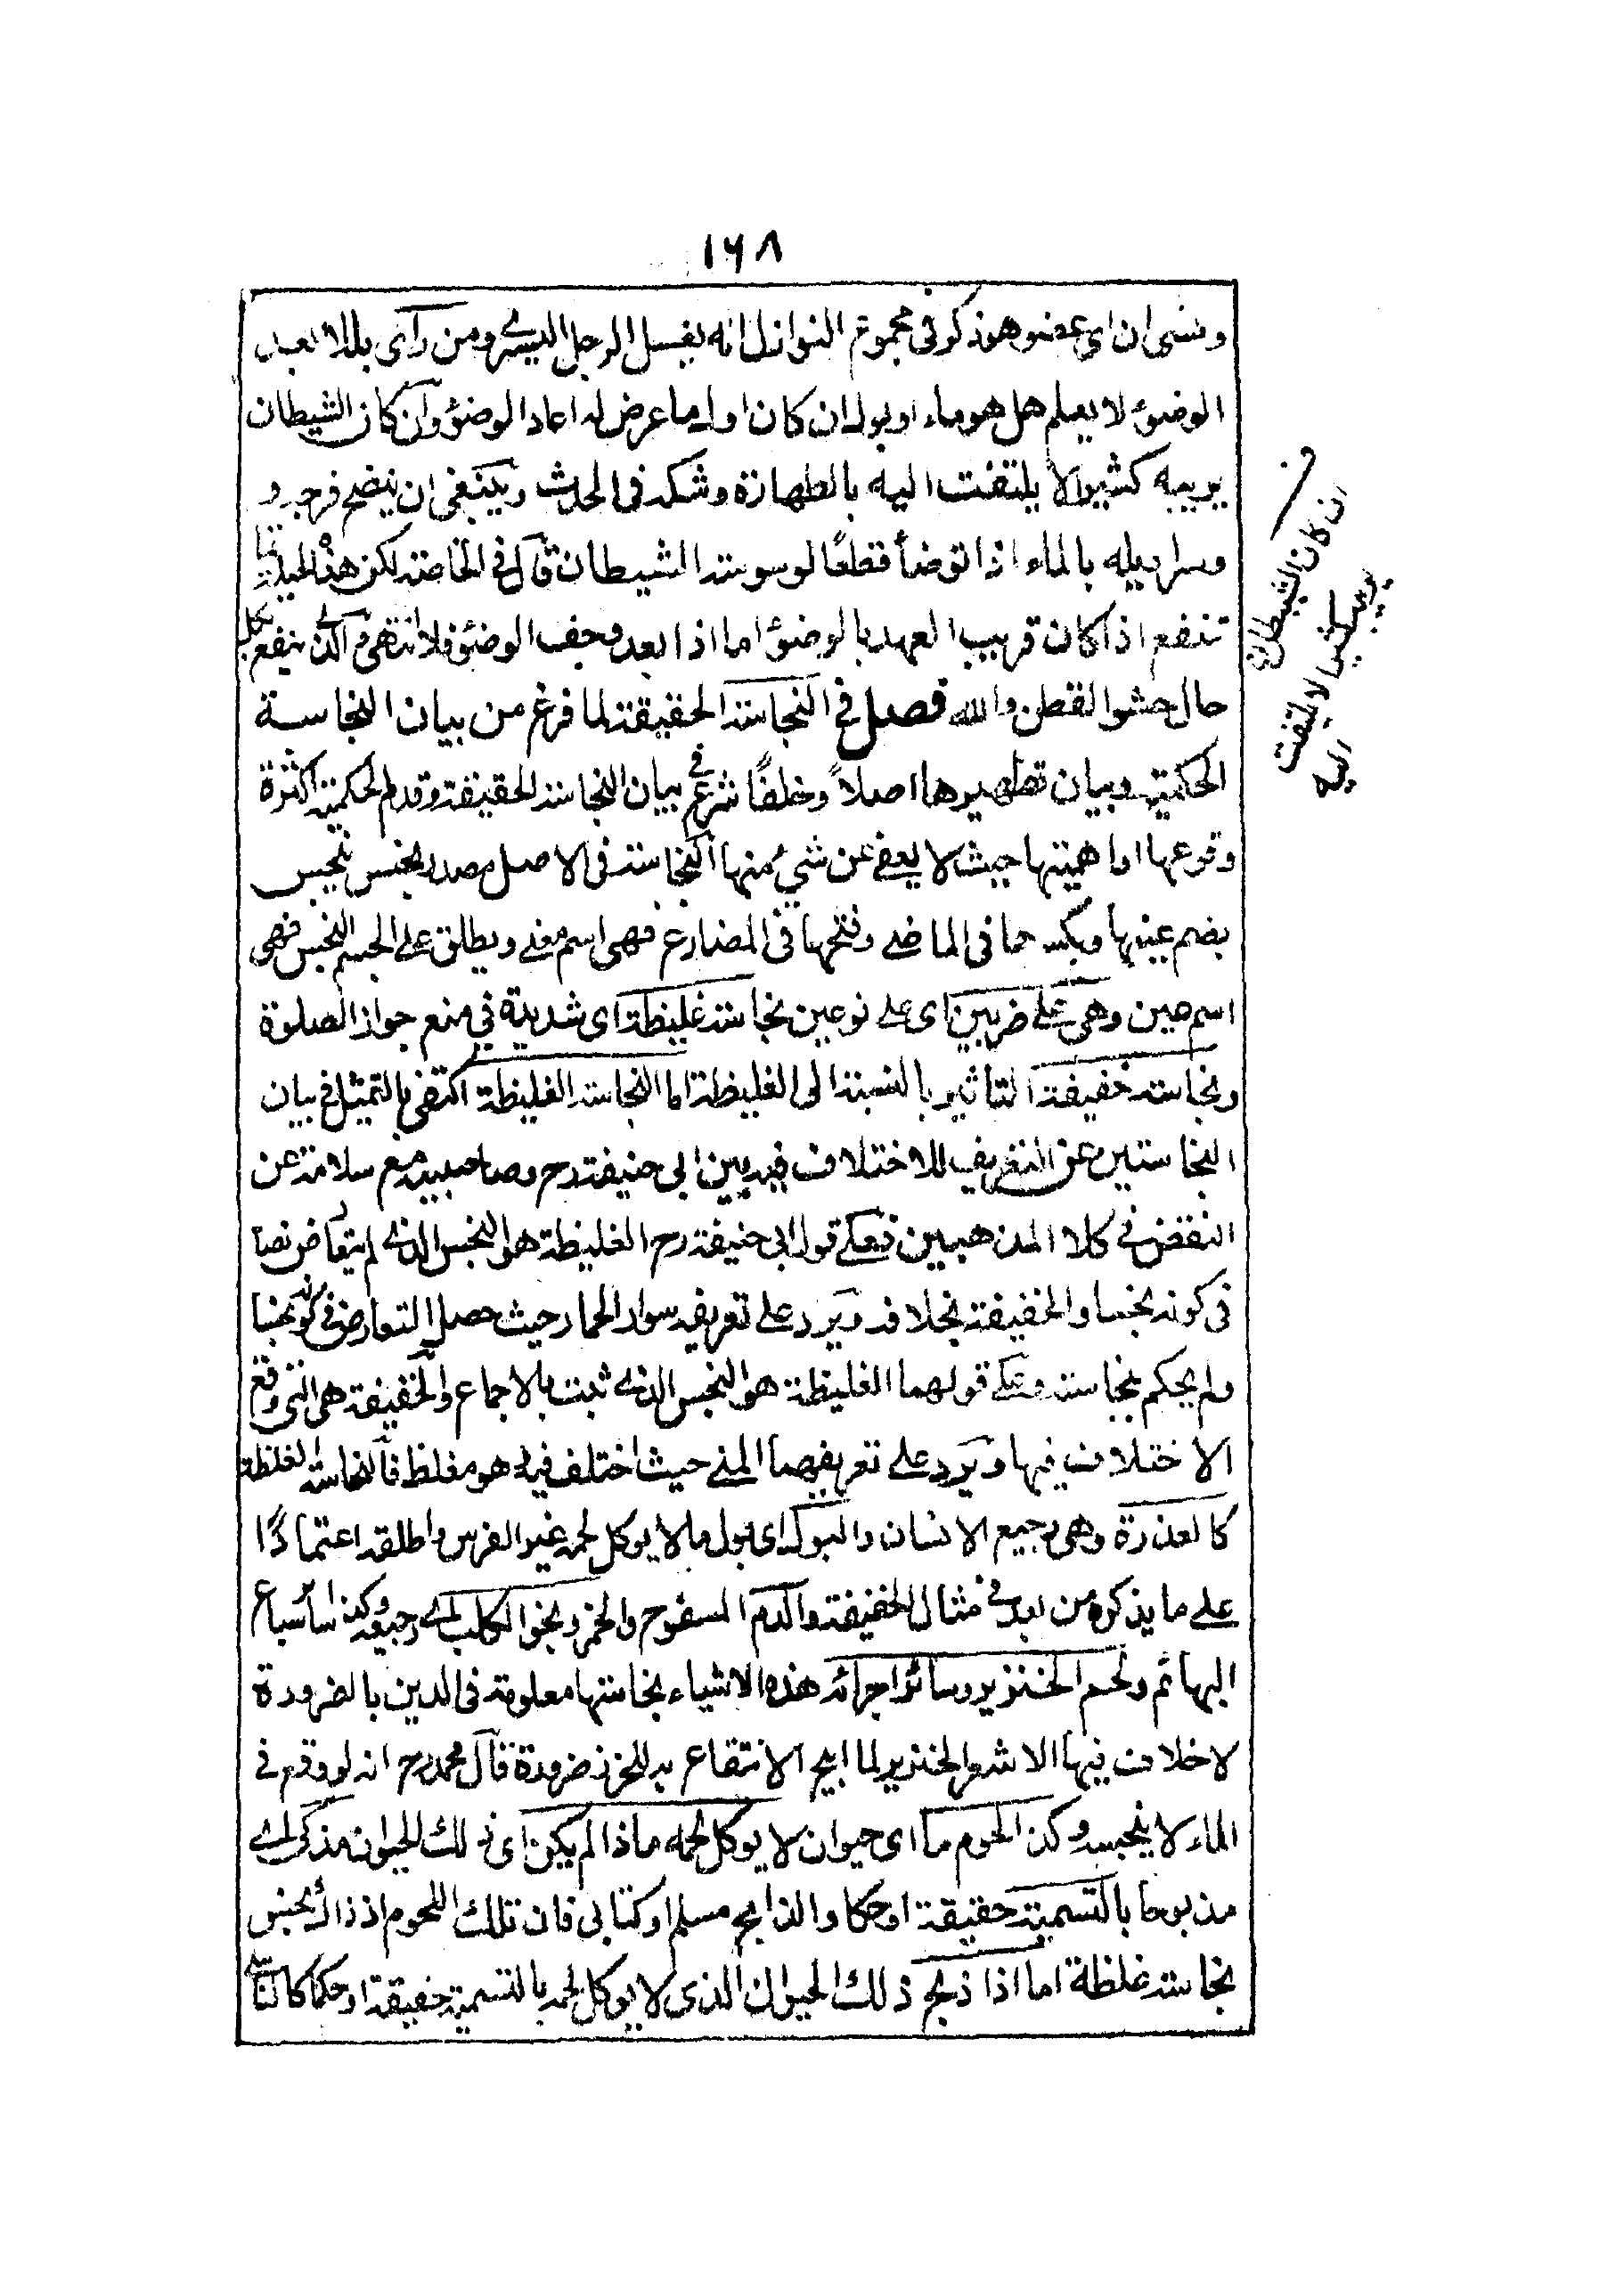 ١٦٨
ونسى ان اى عضو هو ذكر فى مجموع النوازل انه يغسل الرجل اليسرى ومن رأى بللا بعد
الوضوء لا يعلم هل هو ماء او بول ان كان اول ما عرض له اعاد الوضوء وان كان الشيطان
يريبه كثيرا لا يلتفت اليه بالطهارة وشك فى الحدث وينبغى ان ينضح فرجه و
وسراويله بالماء اذا توضأ قطعًا لوسوسة الشيطان قال فى الخاصة لكن هذه الحيلة انما
تنفع اذا كان قريب العهد بالوضوء اما اذا بعد وجف الوضوء فلا انتهى ولكن ينفع بكل
حال حشو القطن والله فصل فى النجاسة الحقيقة لما فرغ من بيان النجاسة
الحكمية وبيان تطهيرها اصلاً وخلفًا شرع فى بيان النجاسة الحقيقة وقدم الحكمية لكثرة
وقوعها او اهميتها حيث لا يعفى عن شئ منها النجاسة فى الاصل مصدر نجس ينجس
بضم عينها وبكسرها فى الماضى وفتحها فى المضارع فهى اسم معنى ويطلق على الجسم النجس فهى
اسم عين وهى على ضربين اى على نوعين نجاسة غليظة اى شديدة فى منع جواز الصلوة
ونجاسة خفيفة التأثير بالنسبة الى الغليظة اما النجاسة الغليظة اكتفى بالتمثيل فى بيان
النجاستين عن التعريف للاختلاف فيه بين ابى حنيفة رح وصاحبيه مع سلامة عن
النقض فى كلا المذهبين فعلى قول ابى حنيفة رح الغليظة هو النجس الذى لم يتعارض نصا
فى كونه نجسا والخفيفة بخلافه ويرد على تعريفه سوار الحمار حيث حصل التعارض فى كونه نجسا
ولم يحكم بنجاسته وعلى قولهما الغليظة هو النجس الذى ثبت بالاجماع والخفيفة هى التى وقع
الاختلاف فيها ويرد على تعريفهما المنى حيث اختلف فيه وهو مغلظ فالنجاسة الغلظة
كالعذرة وهى رجيع الانسان والبول اى بول ما لا يوكل لحمه غير الفرس واطلقه اعتمادًا
على ما يذكره من بعد فى مثال الخفيفة والدم المسفوح والخمر ونجو الكلب اى رجيعه وكذا سائر سباع
البهائم ولحم الخنزير وسائر اجزائه هذه الاشياء نجاستها معلومة فى الدين بالضرورة
لا خلاف فيها الا شعر الخنزير لما ابيح الانتفاع به للخرز ضرورة قال محمد رح انه لو وقع فى
الماء لا ينجسه وكذا لحوم ما اى حيوان لا يوكل لحمه ماذا لم يكن اى ذلك الحيوان مذكى اى
مذبوحا بالتسمية حقيقة او حكما والذابح مسلم او كتابى فان تلك اللحوم اذ ذاك نجس
نجاسة غلظة اما اذا ذبح ذلك الحيوان الذى لا يوكل لحمه بالتسمية حقيقة او حكما كالناسى
ان كان الشيطان
يريبه كثيرا لا يلتفت
اليه